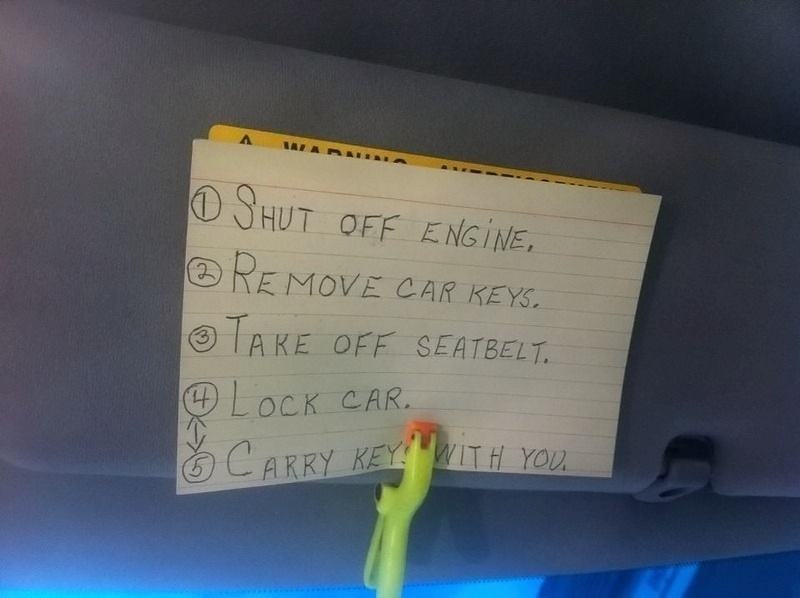 WARNING AVERTISSEMENT
① SHUT OFF ENGINE.
② REMOVE CAR KEYS.
③ TAKE OFF SEATBELT.
④ LOCK CAR.
↕
⑤ CARRY KEYS WITH YOU.